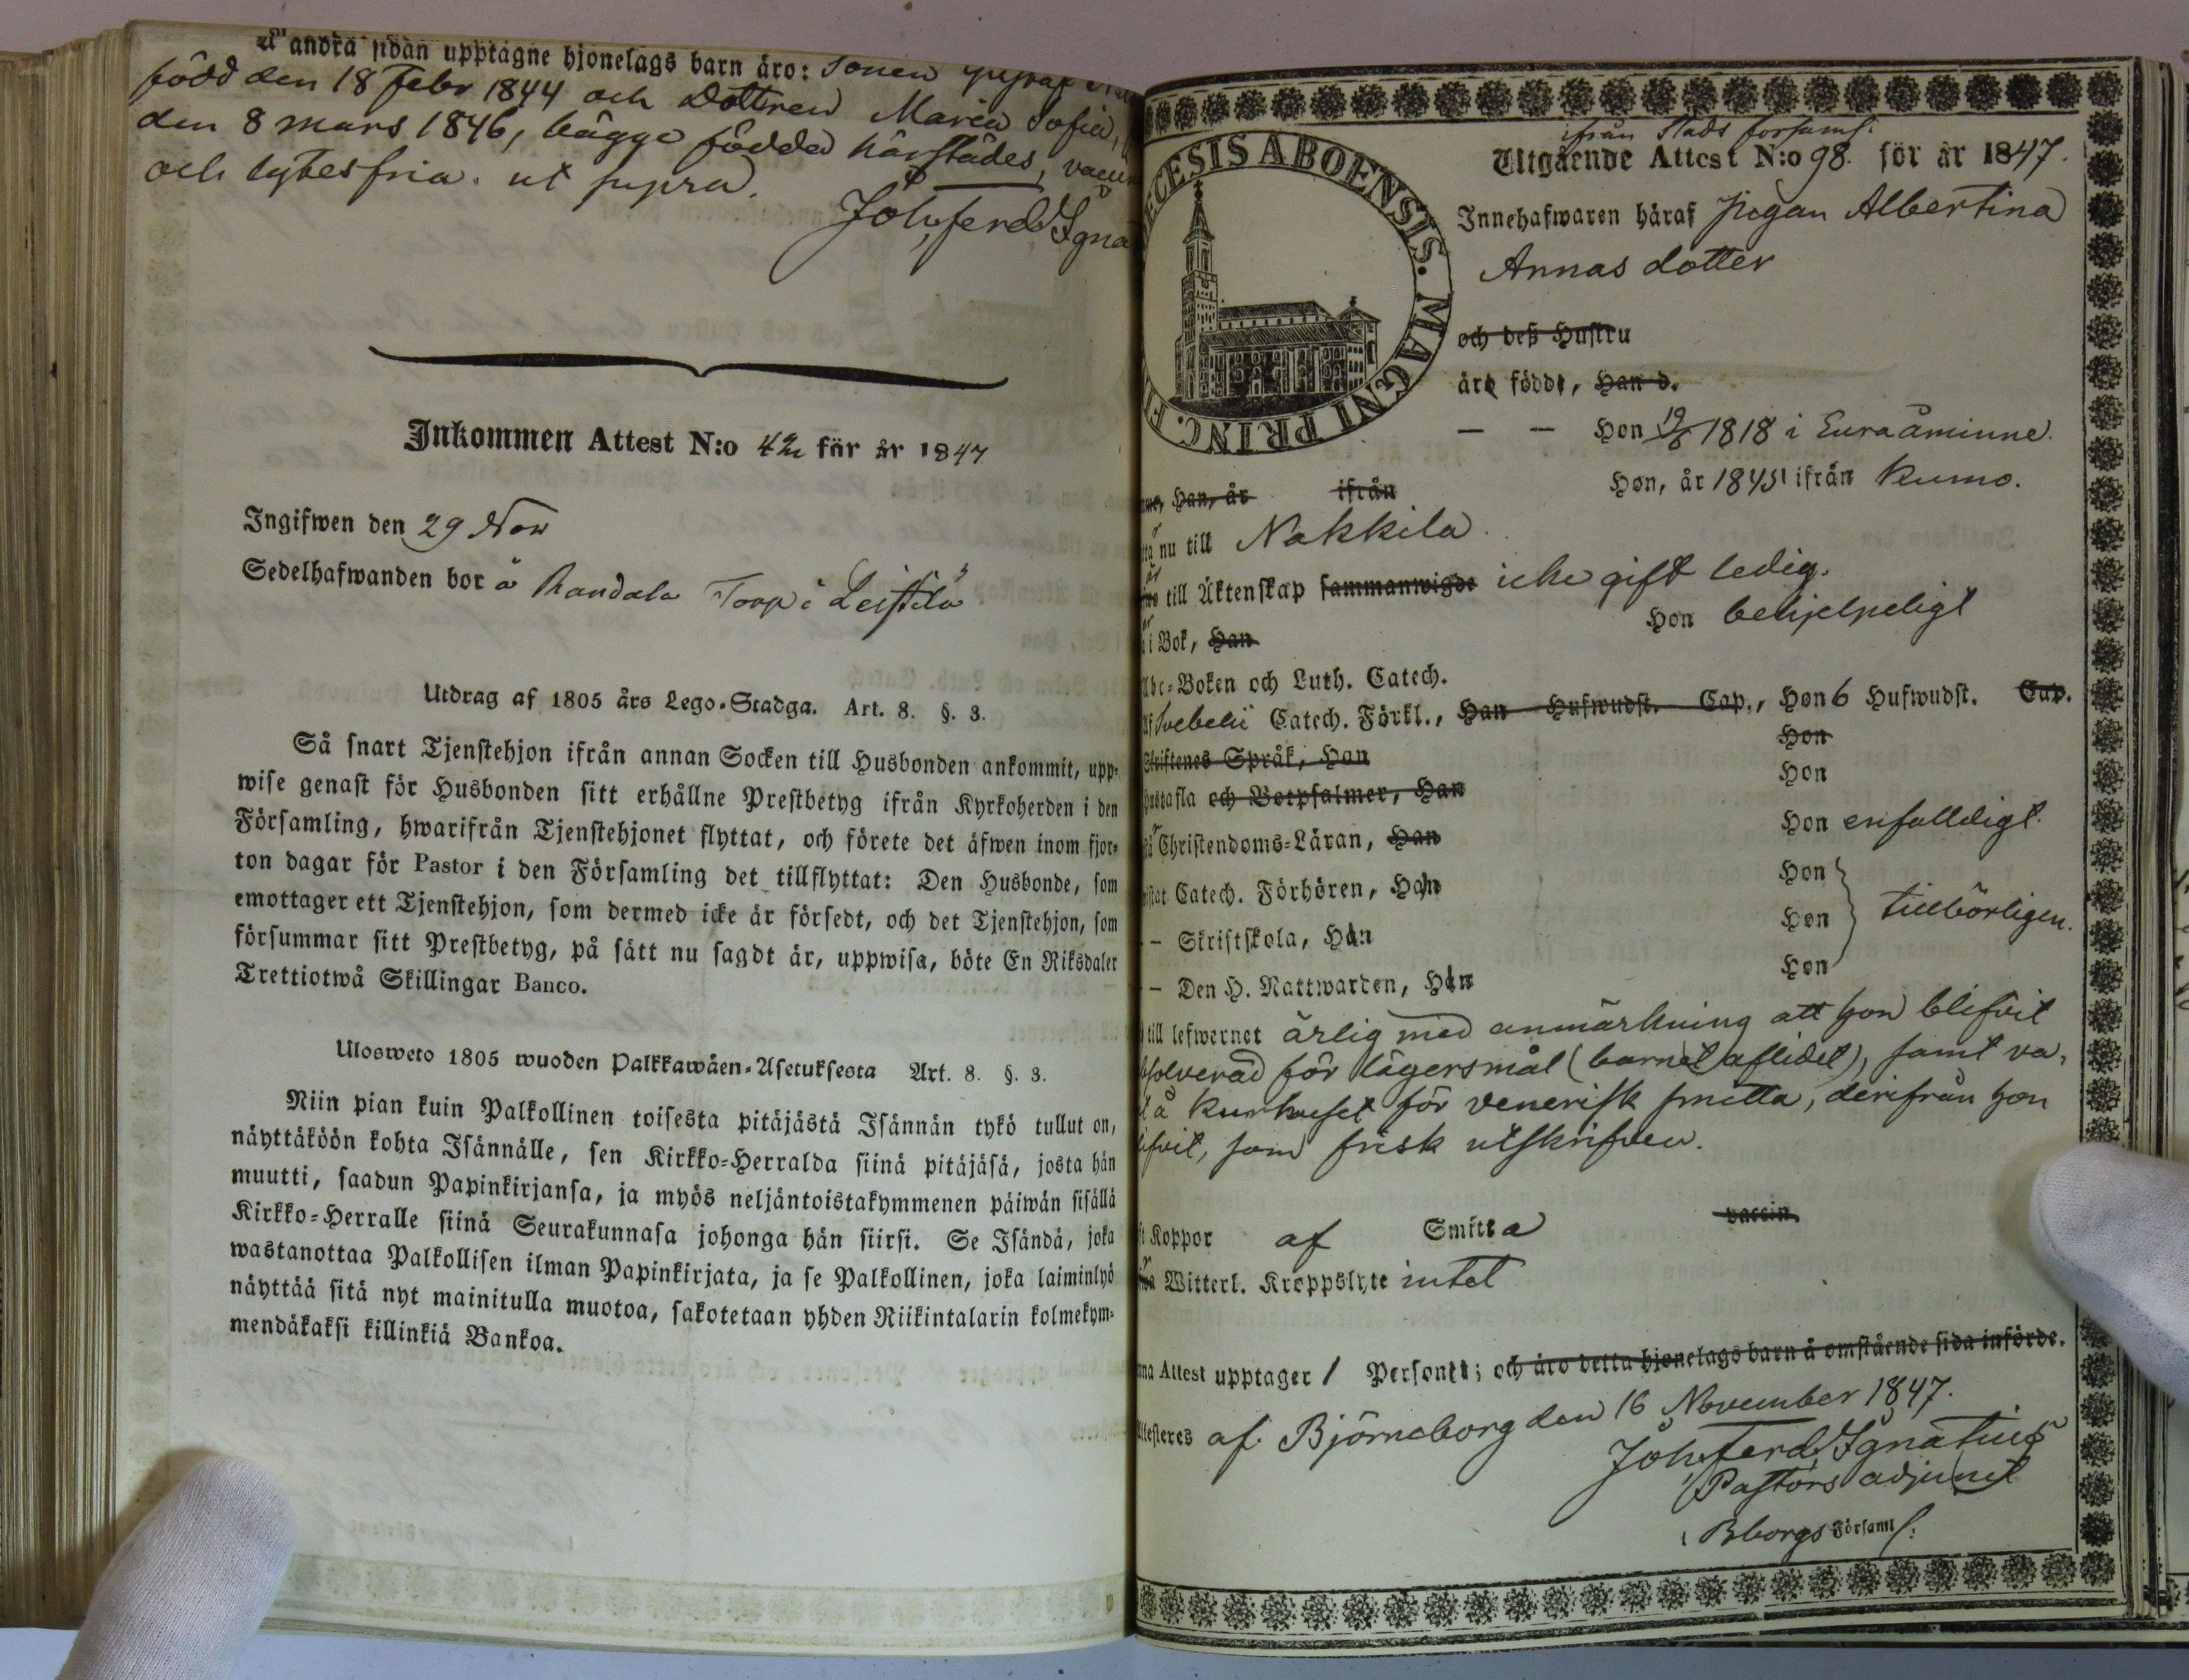 andra sidan upptagne hjonelags barn äro: Sonen
född den 18 Febr 1844 och Dottren Maria Sofia,
den 8 mars 1846, bägge födda härstädes,
och lytesfria. ut supra.
Joh. Ferd. Igna
Inkommen Attest N:o 42 för år 1847
Ingifwen den 29 Nov
Sedelhafwanden bor å Randala Torp i Leistilä
Utdrag af 1805 års Lego-Stadga. Art. 8. §. 3.
Så snart Tjenstehjon ifrån annan Socken till Husbonden ankommit, upp-
wise genast för Husbonden sitt erhållne Prestbetyg ifrån Kyrkoherden i den
Församling, hwarifrån Tjenstehjonet flyttat, och förete det äfwen inom fjor-
ton dagar för Pastor i den Församling det tillflyttat: Den Husbonde, som
emottager ett Tjenstehjon, som dermed icke är försedt, och det Tjenstehjon, som
försummar sitt Prestbetyg, på sätt nu sagdt är, uppwisa, böte En Riksdaler
Trettiotwå Skillingar Banco.
Ulosweto 1805 wuoden Palkkawäen-Asetuksesta Art. 8. §. 3.
Niin pian kuin Palkollinen toisesta pitäjästä Isännän tykö tullut on,
näyttäköön kohta Isännälle, sen Kirkko-Herralda siinä pitäjäsä, josta hän
muutti, saadun Papinkirjansa, ja myös neljäntoistakymmenen päiwän sisällä
Kirkko-Herralle siinä Seurakunnasa johonga hän siirsi. Se Isändä, joka
wastanottaa Palkollisen ilman Papinkirjata, ja se Palkollinen, joka laiminlyö
näyttää sitä nyt mainitulla muotoa, sakotetaan yhden Riikintalarin kolmekym-
mendäkaksi killinkiä Bankoa.
ECESIS ABOENSIS. MAGNI PRINC. FI
ifrån Stads församl.
Utgående Attest N:o 98. för år 1847.
Innehafwaren häraf Pigan Albertina
Annas dotter
och deß Hustru
äro födde, Han d.
— — Hon 19/6 1818 i Euraåminne.
Han, år ifrån Hon, år 1845 ifrån Kumo.
nu till Nakkila.
till Äktenskap sammanwigde icke gift ledig.
i Bok, Han Hon behjelpeligt
Abc-Boken och Luth. Catech.
Svebelii Catech. Förkl., Han Hufwudst. Cap., Hon 6 Hufwudst. Cap.
Skriftenes Språk, Han Hon
Hustafla och Botpsalmer, Han Hon
Christendoms-Läran, Han Hon enfalldigt.
Catech. Förhören, Han Hon
— Skriftskola, Han Hon tillbörligen.
— Den H. Nattwarden, Han Hon
till lefwernet ärlig med anmärkning att hon blifvit
absolverad för lägersmål (barnet aflidet), samt va-
å Kurhuset för venerisk smitta, derifrån hon
blifvit, som frisk utskrifven.
Koppor af Smitta vaccin.
Witterl. Kroppslyte intet
Attest upptager 1 Personer; och äro detta hjonelags barn å omstående sida införde.
Attesteres af. Björneborg den 16 November 1847.
Joh. Ferd. Ignatius
Pastors adjunct
i Bborgs Församl.